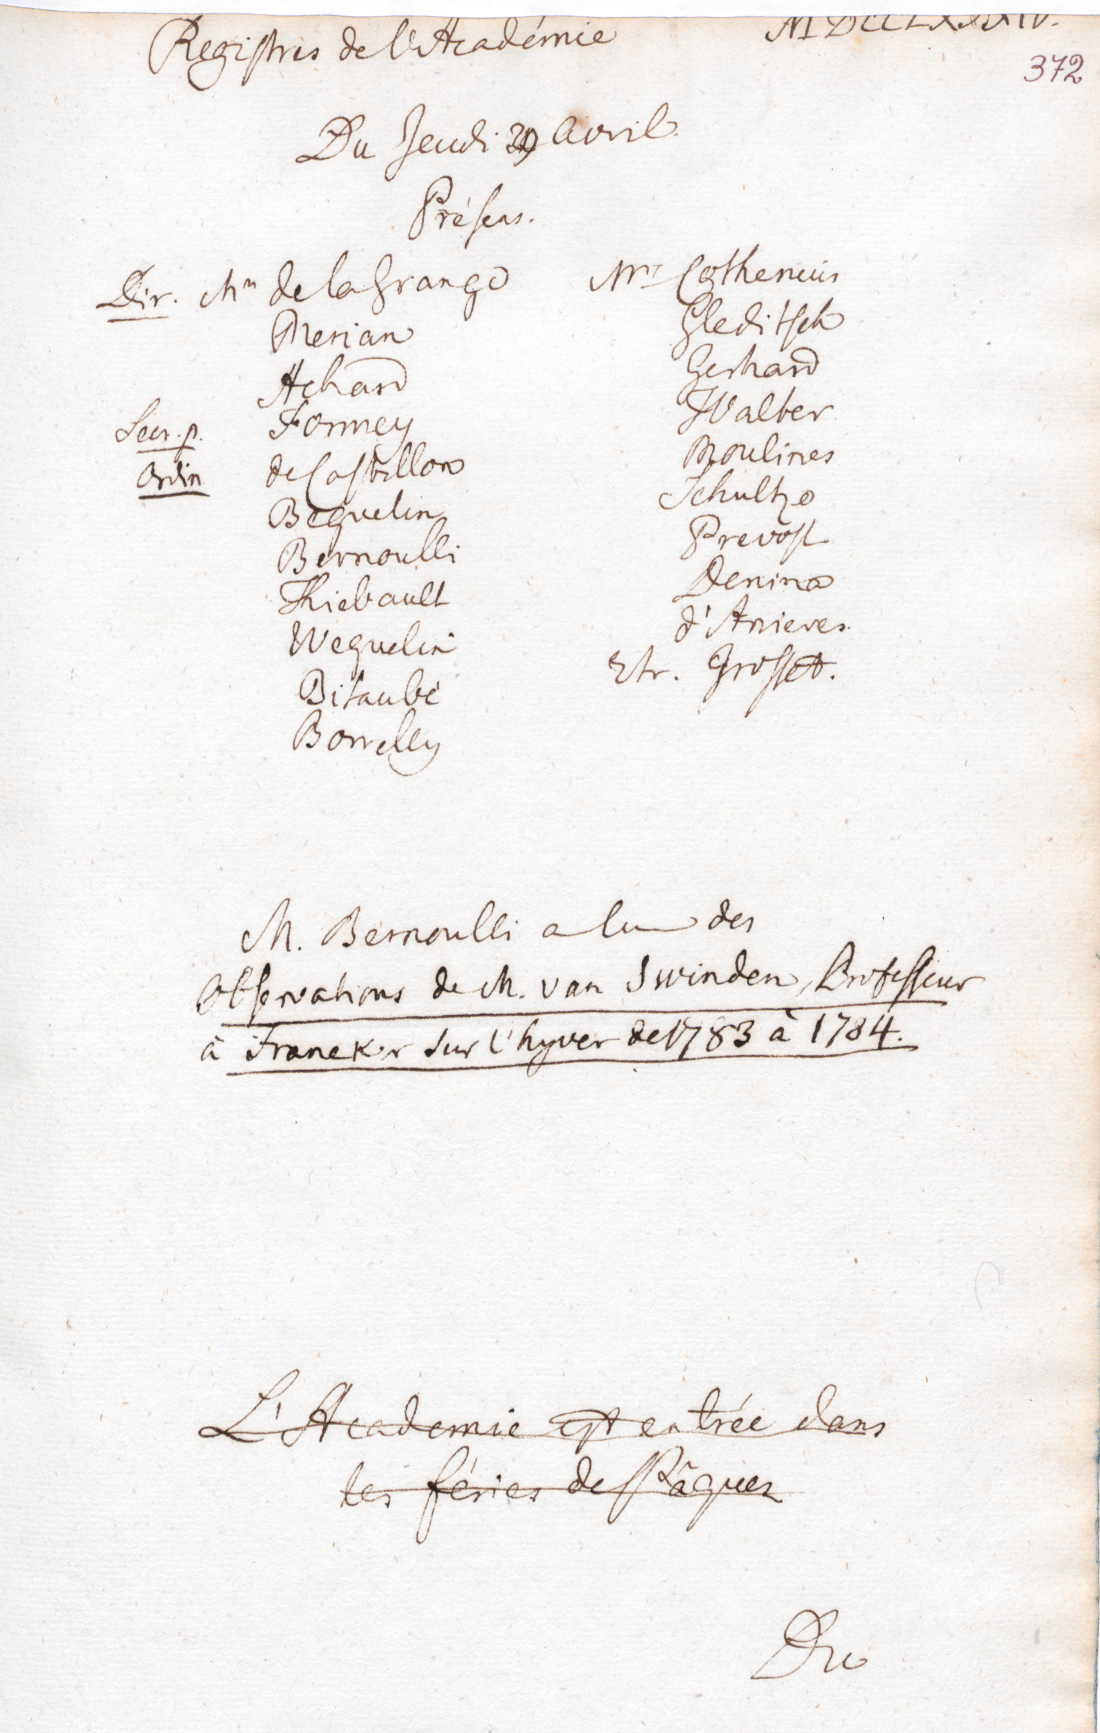 Registres de l'Académie
MDCCLXXXIV.
372
Du Jeudi 29 Avril.
Présens.
Dir. Mrs de la Grange
Merian
Achard
Secr. p. Formey
Ordin de Castillon
Beguelin
Bernoulli
Thiebault
Weguelin
Bitaubé
Borrelly
Mrs Cothenius
Gleditsch
Gerhard
Walter
Moulines
Schultze
Prevost
Denina
d'Anieres.
Etr. Grosset.
M. Bernoulli a lu des
Observations de M. van Swinden, Professeur
à Franeker sur l'hyver de 1783 à 1784.
L'Academie est entrée dans
les féries de Pâques
Du